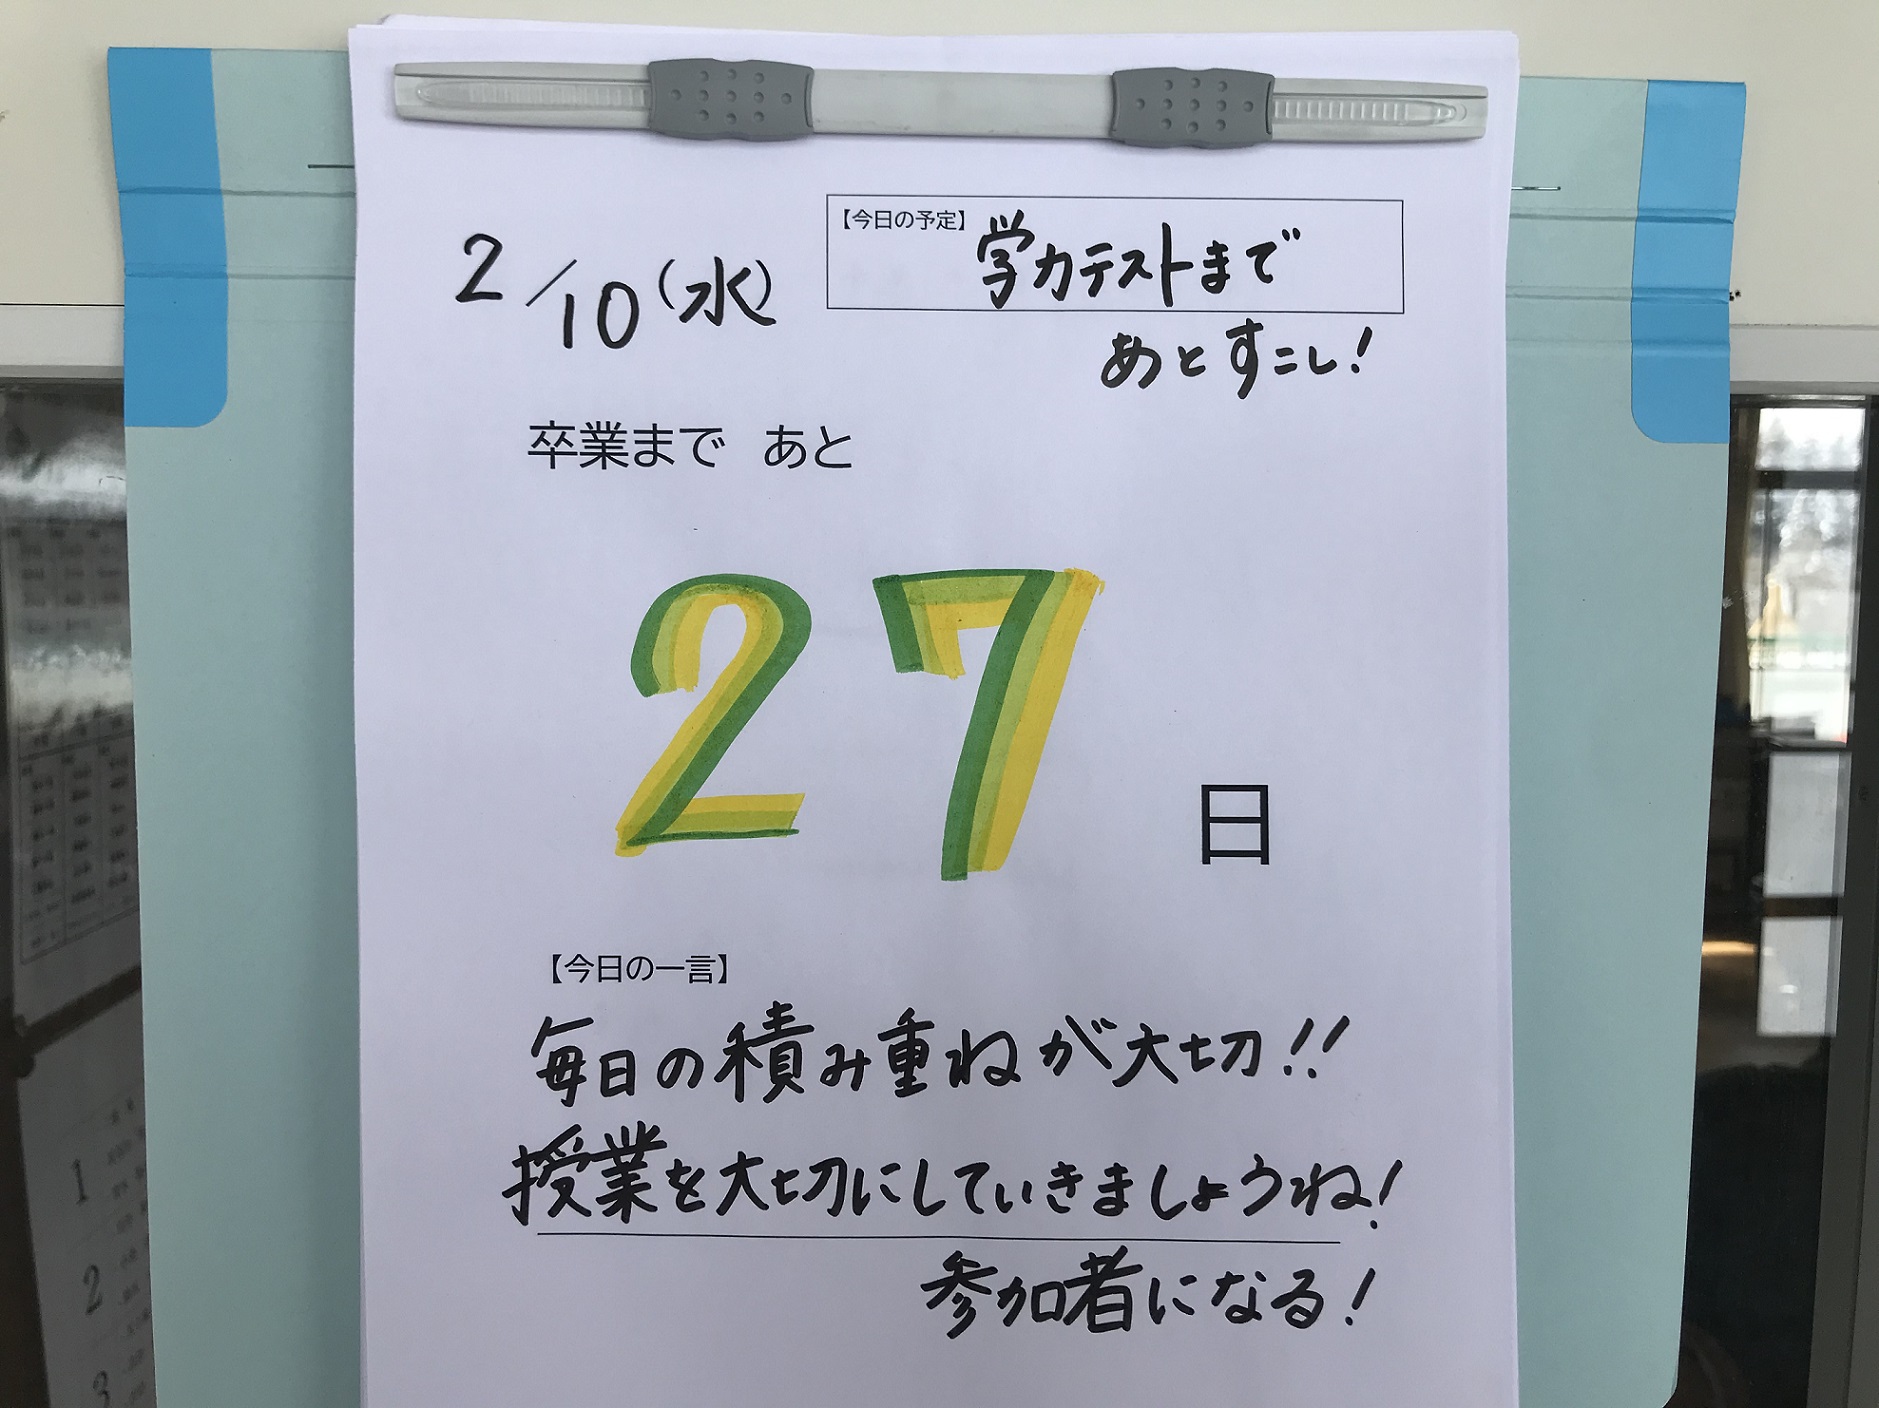 2/10(水)
【今日の予定】学力テストまで
あとすこし!
卒業まで あと
27日
【今日の一言】
毎日の積み重ねが大切!!
授業を大切にしていきましょうね!
参加者になる!
1
2
3